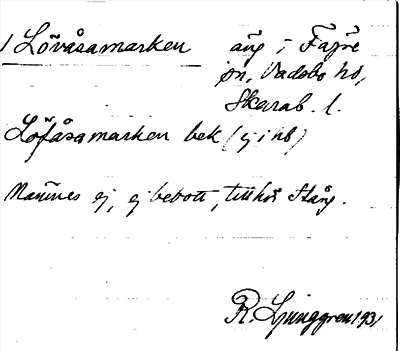 1 Lövåsamarken äng i Fägre
sn, Vadsbo hd,
Skarab. l.
Löfåsamarken bek (ej i hb)
Namnes ej, ej bebott, tillhör Stång.
R. Ljunggren 1931